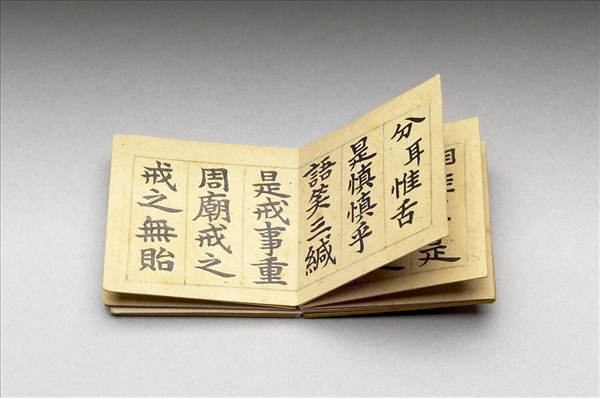 是
分耳惟舌
是慎慎乎
語笑三緘
是戒事重
周廟戒之
戒之無貽